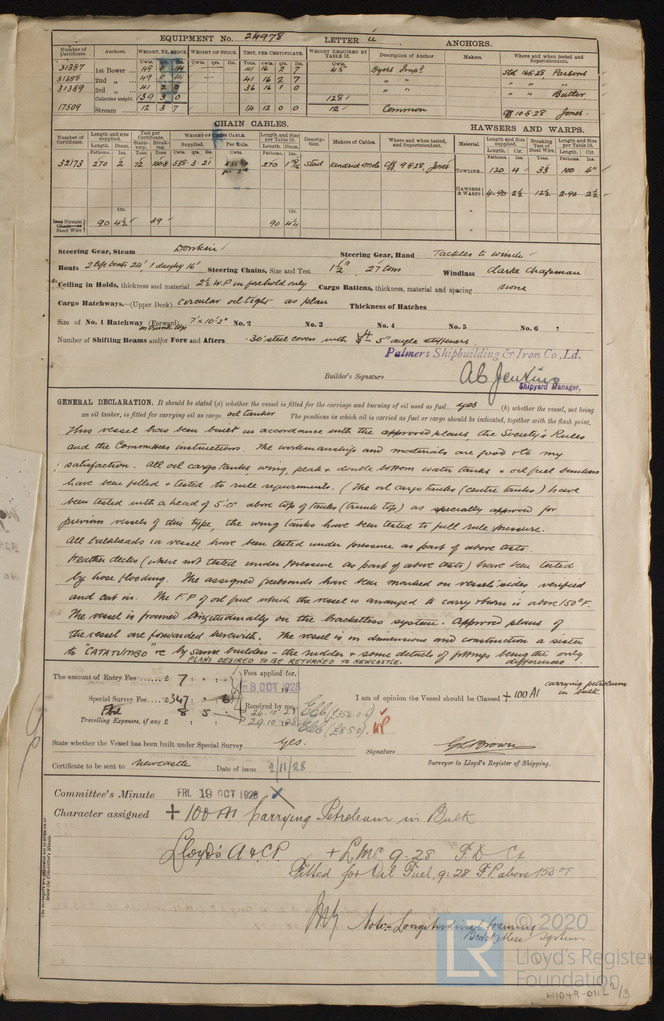 EQUIPMENT No. 24978 LETTER u ANCHORS.
Number of Certificate. Anchors. WEIGHT, EX. STOCK WEIGHT OF STOCK. TEST, PER CERTIFICATE. WEIGHT REQUIRED BY TABLE 53. Description of Anchor Makers. Where and when tested and Superintendent.
Cwts. qrs. lbs. Tons. Cwts. qrs. lbs. Cwts.
31387 1st Bower 49 0 14 41 16 2 7 45 Byers Impd Sld 14.5.28 Parsons
2nd " 49 0 14 41 16 2 7 " " " " "
31389 3rd " 41 2 0 36 16 1 0 " " " " Butler
Collective weight 139 3 0 128
17509 Stream 12 3 7 14 12 0 0 12 Common 10.5.28 Jones
CHAIN CABLES. HAWSERS AND WARPS.
Number of Certificate. Length and size supplied. Test per Certificate. WEIGHT OF CHAIN CABLE. Length and Size per Table 53. Description. Makers of Cables. Where and when tested, and Superintendent. Material. Length and Size supplied. Breaking Test of Steel Wire. Length and Size per Table 53.
Supplied. Per Rule.
Fathoms. Ins. Tons. Tons. Cwts. qrs. lbs. Length. Diam. Fathoms. Ins. Tons. Fathoms. Ins.
32173 270 2 72 100.8 538.3.21 270 Stud 9.5.28 Jones TOWLINE 120 4 33 100 4
HAWSERS & WARPS 4-90 2½ 12½ 2-90 2½
Cir. Cir.
Stream Steel Wire 90 4½ 39 90 4¼
Steering Gear, Steam Donkin Steering Gear, Hand Tackles to winch
Boats 2 life boats 24' 1 dinghy 16' Steering Chains, Size and Test 1½" 27 tons Windlass Clarke Chapman
Ceiling in Holds, thickness and material 2½ W.P in forehold only Cargo Battens, thickness, material and spacing none
Cargo Hatchways.—(Upper Deck) circular oil tight as plan Thickness of Hatches
Size of No. 1 Hatchway (Forward) 7' x 10'.2" No. 2 No. 3 No. 4 No. 5 No. 6
on trunk top
Number of Shifting Beams and/or Fore and Afters .30" steel covers with 5" angle stiffeners
Palmers Shipbuilding & Iron Co., Ld.
Builder's Signature A B Jenkins
Shipyard Manager.
GENERAL DECLARATION. It should be stated (a) whether the vessel is fitted for the carriage and burning of oil used as fuel yes (b) whether the vessel, not being
an oil tanker, is fitted for carrying oil as cargo oil tanker The positions in which oil is carried as fuel or cargo should be indicated, together with the flash point,
This vessel has been built in accordance with the approved plans, the Society's Rules
and the Committee's instructions. The workmanship and materials are good & to my
satisfaction. All oil cargo tanks wing, peak & double bottom water tanks & oil fuel bunkers
have been filled & tested to rule requirements. (The oil cargo tanks (centre tanks) have
been tested with a head of 5'-0" above top of tanks (trunk top) as specially approved for
previous vessels of this type, the wing tanks have been tested to full rule pressure.
All bulkheads in vessel have been tested under pressure as part of above tests.
Weather decks (where not tested under pressure as part of above tests) have been tested
by hose flooding. The assigned freeboards have been marked on vessel's sides verified
and cut in. The F.P of oil fuel which the vessel is arranged to carry & burn is above 150°F.
The vessel is framed longitudinally on the bracketless system. Approved plans of
the vessel are forwarded herewith. The vessel is in dimensions and construction a sister
to "CATATUMBO" &c by same builders - the rudder & some details of fittings being the only
differences
PLANS DESIRED TO BE RETURNED TO NEWCASTLE.
The amount of Entry Fee £ 7 : : Fees applied for,
-8 OCT 1928
Special Survey Fee £ 347 : : 6 Received by me,
8 5 26.10.28 (£354.0.6)
Travelling Expenses, if any £ : : 29.10.28 (£8.5.0)
I am of opinion the Vessel should be Classed +100 A1 carrying petroleum in bulk.
State whether the Vessel has been built under Special Survey yes. Signature Brown
Certificate to be sent to Newcastle Date of issue 2/11/28 Surveyor to Lloyd's Register of Shipping.
Committee's Minute FRI. 19 OCT 1928
Character assigned + 100 A1 Carrying Petroleum in Bulk
Lloyd's A & CP + LMC 9.28 F.D. CL
Fitted for Oil Fuel 9.28 F.P. above 150°F
Note:- Longitudinal framing
Bracketless System
© 2020
LR Lloyd's Register
Foundation
W1049-0112 2/3